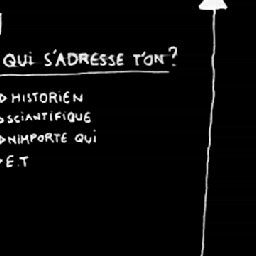 QUI S'ADRESSE T'ON?
HISTORIEN
SCIANTIFIQUE
N'IMPORTE QUI
E.T